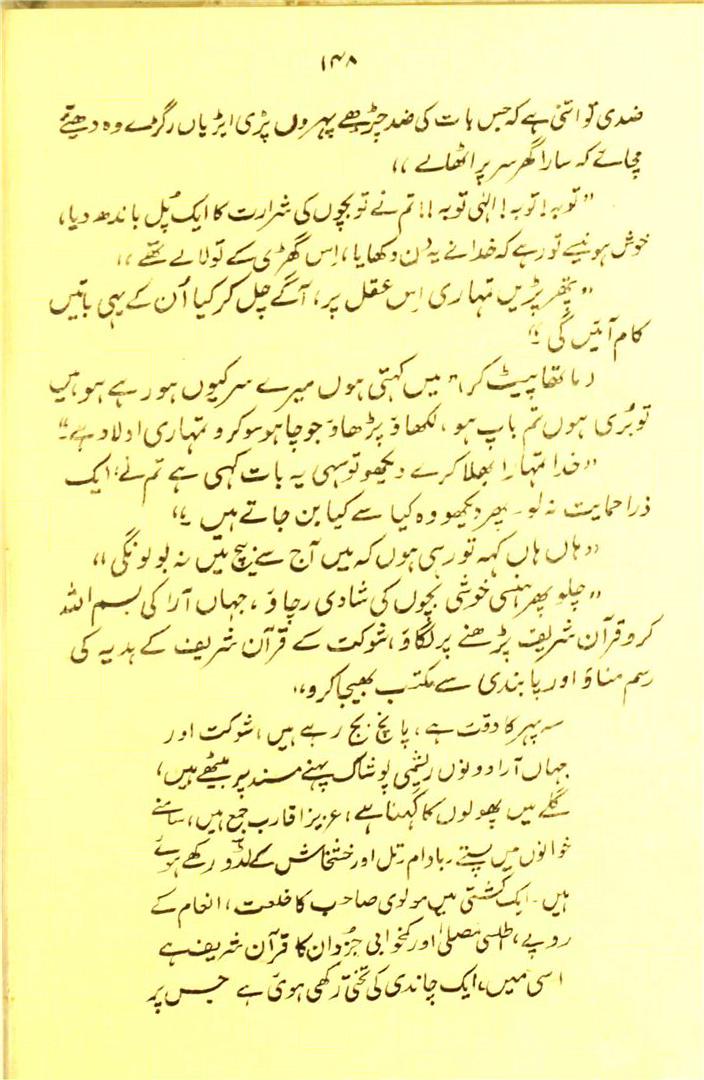 ۱۴۸
ضدی تو اتنی ہے کہ جس بات کی ضد چڑھے پہروں پڑی ایڑیاں رگڑے وہ دھیئے
مچائے کہ سارا گھر سر پر اٹھالے،،
”توبہ! توبہ! الٰہی توبہ!! تم نے تو بچوں کی شرارت کا ایک پُل باندھ دیا،
خوش ہونیسے تو رہے کہ خدا نے یہ دن دکھایا، اِس گھڑی کے تو لالے تھے،،
”پتھر پڑیں تمہاری اِس عقل پر، آگے چل کر کیا اُن کے یہی باتیں
کام آئیں گی؟“
(ماتھا پیٹ کر)” میں کہتی ہوں میرے سر کیوں ہو رہے ہو میں
تو بُری ہوں تم باپ ہو، لکھاؤ پڑھاؤ جو چاہو سو کرو تمہاری اولاد ہے۔“
”خدا تمہارا بھلا کرے دیکھو تو سہی یہ بات کہی ہے تم نے، ایک
ذرا حمایت نہ لو۔ پھر دیکھو وہ کیا سے کیا بن جاتے ہیں۔“
”ہاں ہاں کہہ تو رہی ہوں کہ میں آج سے بیچ میں نہ بولونگی،،
”چلو پھر ہنسی خوشی بچوں کی شادی رچاؤ، جہاں آرا کی بسم اللہ
کرو قرآن شریف پڑھنے پر لگاؤ، شوکت کے قرآن شریف کے ہدیہ کی
رسم مناؤ اور پابندی سے مکتب بھیجا کرو،،
سہ پہر کا وقت ہے، پانچ بج رہے ہیں، شوکت اور
جہاں آرا دونوں ریشمی پوشاک پہنے مسند پر بیٹھے ہیں،
گلے میں پھولوں کا گہنا ہے، عزیز اقارب جمع ہیں، سامنے
خوانوں میں پستے۔ بادام، تِل اور خشخاش کے لڈو رکھے ہوئے
ہیں۔ ایک کشتی میں مولوی صاحب کا خلعت، انعام کے
روپے، اطلسی مصلیٰ اور کمخوابی جزُدان کا قرآن شریف ہے
اسی میں، ایک چاندی کی تختی رکھی ہوئی ہے جس پر